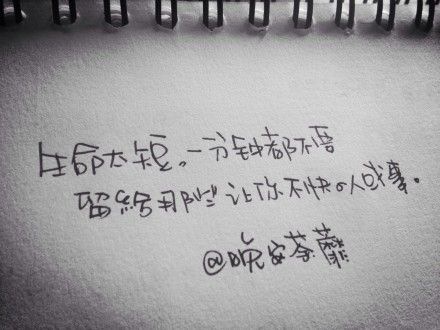 生命太短。一分钟都不要
留給那些让你不快の人或事。
@晚安荼蘼